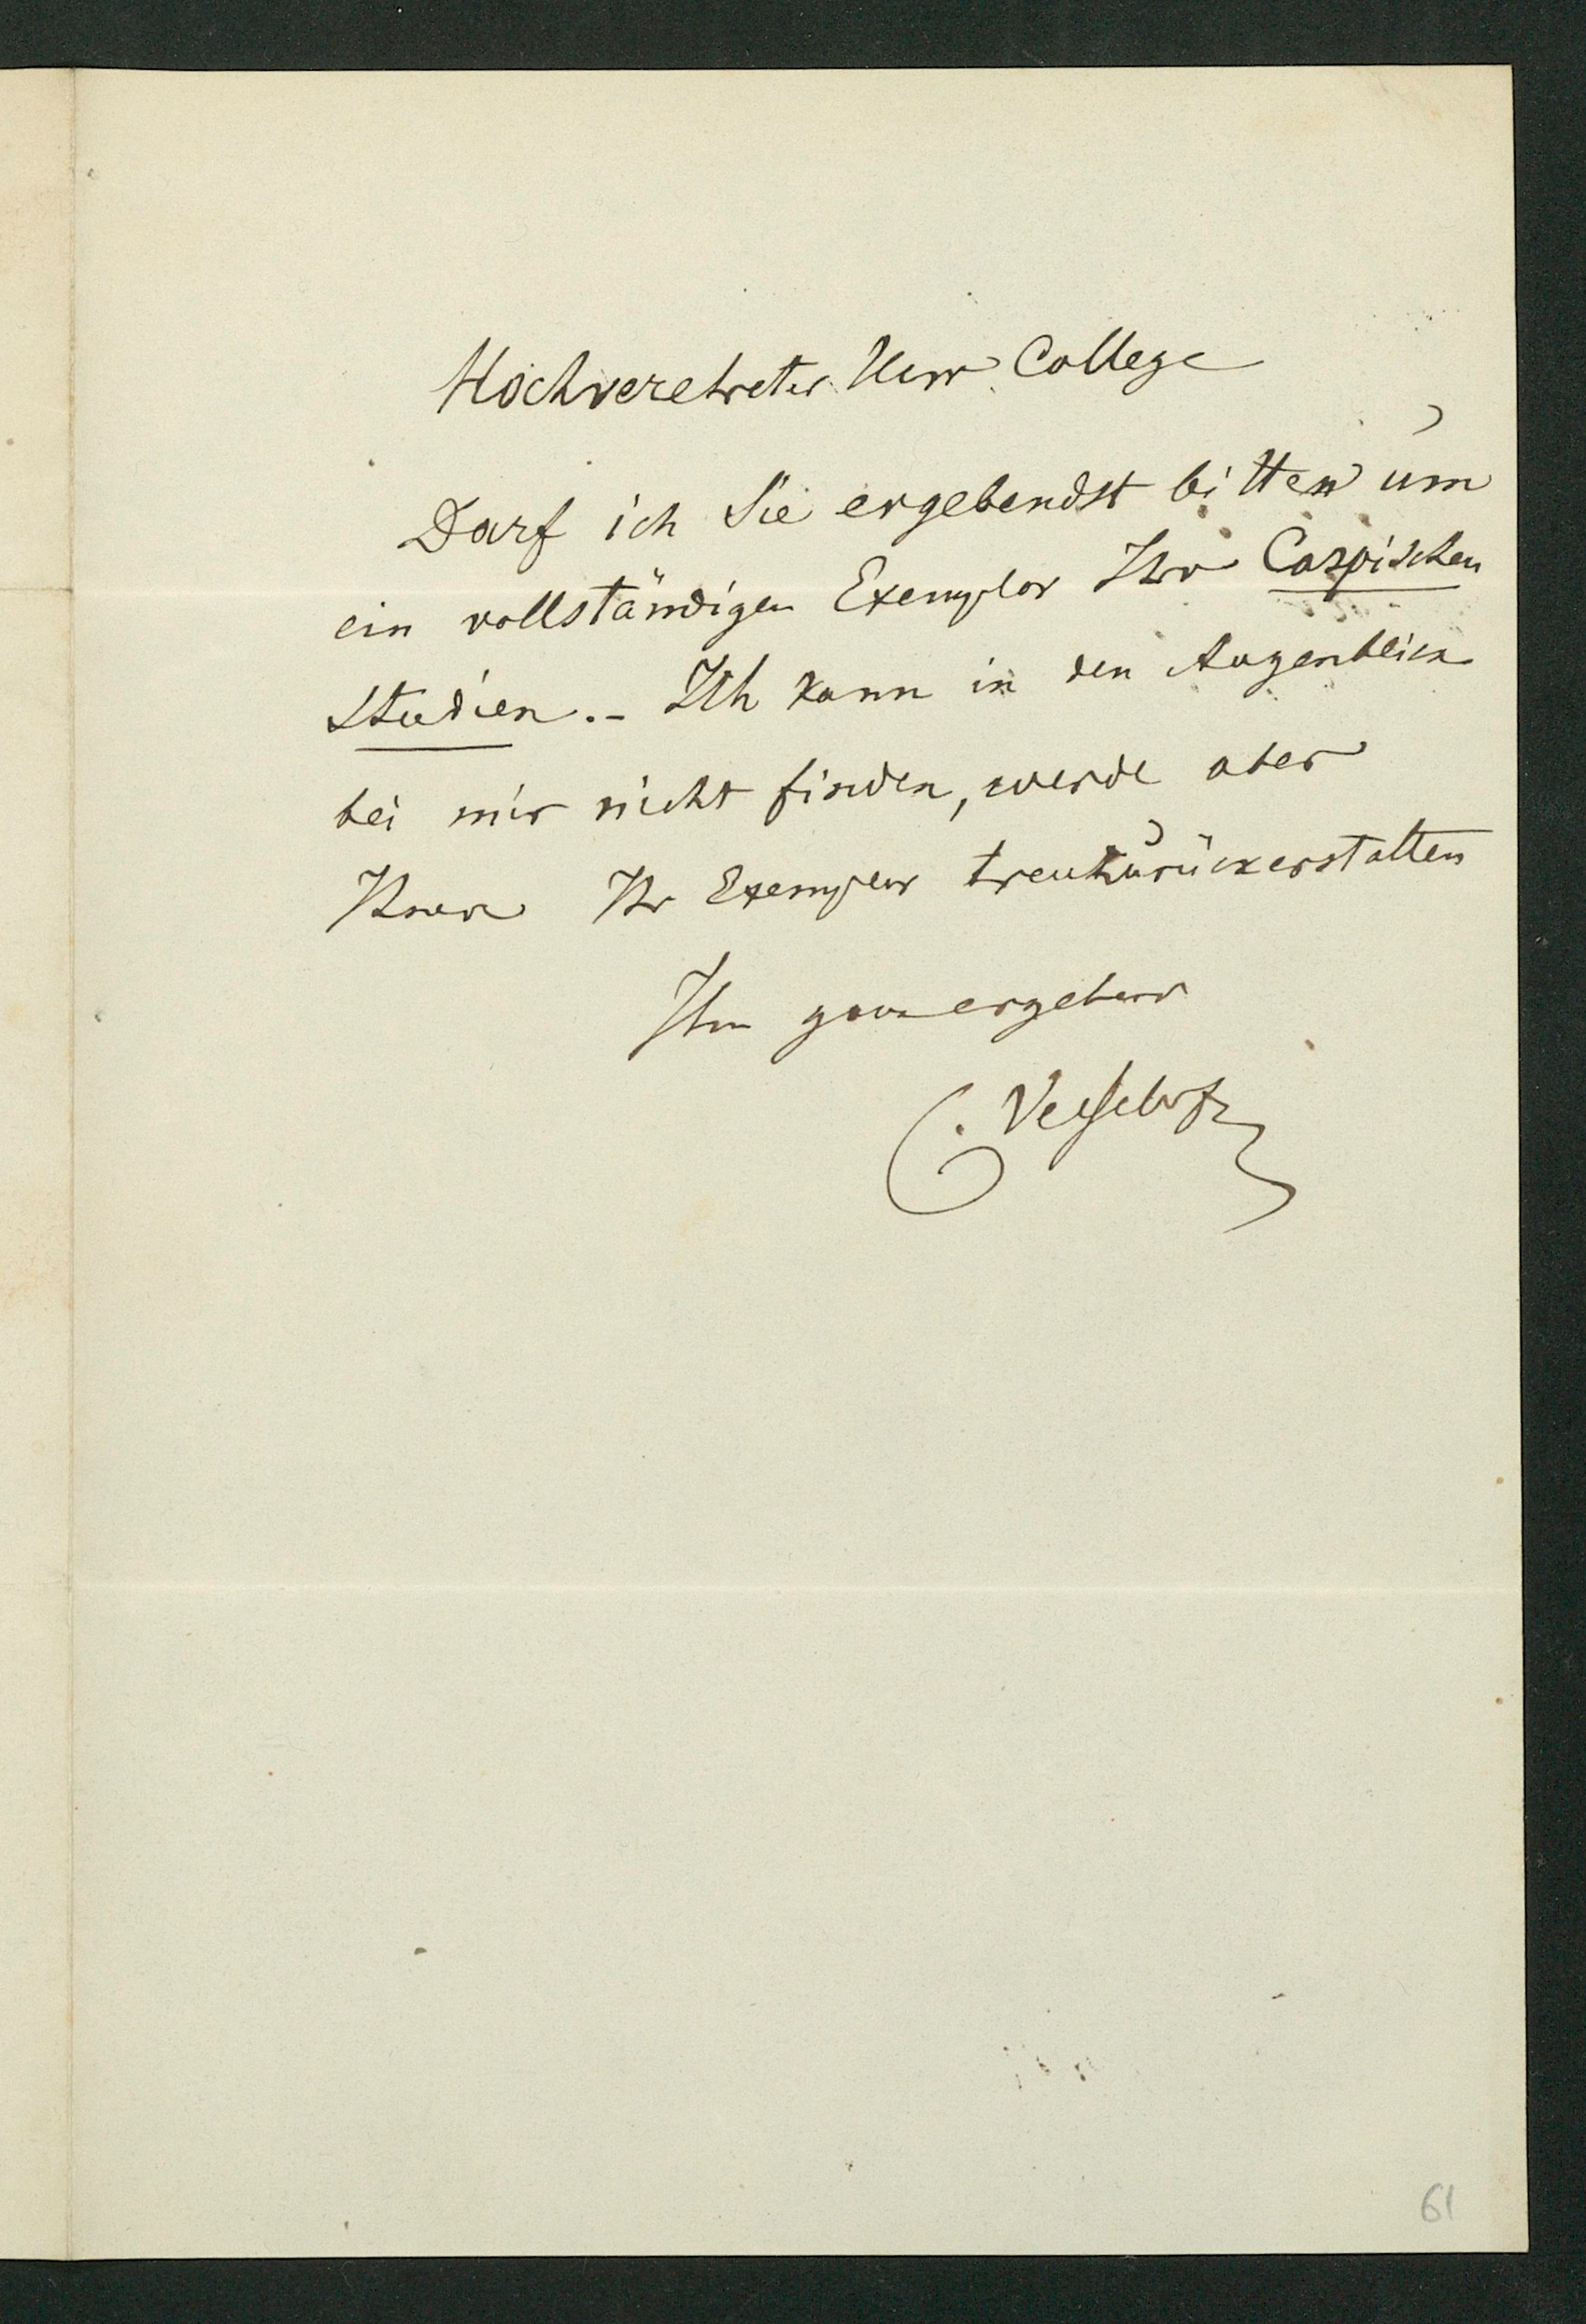 Hochverehrter Herr College
Darf ich Sie ergebendst bitten um
ein vollständigen Exemplar Ihr Caspischen
Studien. - Ich kann in den Augenblick
bei mir nicht finden, werde aber
Ihnen Ihr Exemplar treu zurückerstatten
Ihr ganz ergebener
C.
61